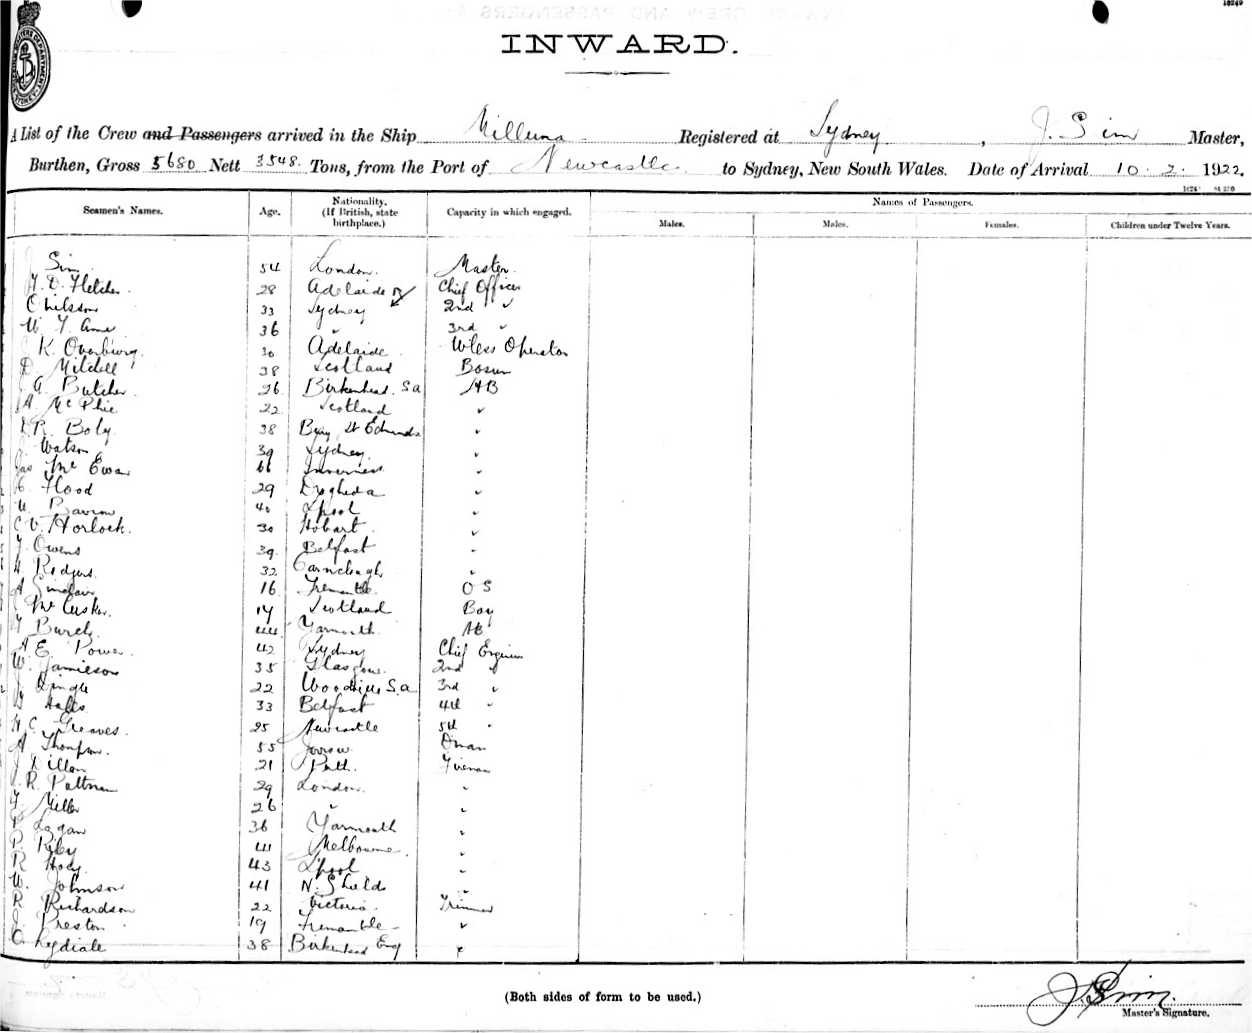 INWARD.
A List of the Crew and Passengers arrived in the Ship Milluna Registered at Sydney, J. Sim Master,
Burthen, Gross 5680 Nett 3548. Tons, from the Port of Newcastle to Sydney, New South Wales. Date of Arrival 10. 2. 1922.
Names of Passengers.
Seamen's Names. Age. Nationality. (If British, state birthplace.) Capacity in which engaged. Males. Males. Females. Children under Twelve Years.
J Sim 54 London. Master.
D. Fletcher 28 Adelaide Chief Officer
33 Sydney 2nd "
36 " 3rd "
K. Overburg. 30 Adelaide. W'less Operator
D. Mitchell 38 Scotland Bosun
G. Butcher 26 Birkenhead. S.a AB
A. McPhie 22 Scotland "
R. Boty 38 Bury St Edmunds "
J. Watson 39 Sydney. "
Jas McEwan 66 Inverness "
Flood 29 Drogheda "
W. Barrow 40 L'pool "
C V. Horlock. 30 Hobart. "
Owens 39 Belfast "
Rodgers. 32 "
A Sinclair 16 Fremantle. O S
McCusker. 17 Scotland Boy
Burch. 44 Yarmouth. AB
A E. Power. 42 Sydney Chief Engineer
W. Jamieson 35 Glasgow. 2nd "
J. Dingle 22 Woodville S.a 3rd "
33 Belfast 4th "
H C. Greaves. 25 Newcastle 5th "
A Thompson. 55 Jarrow D'man
J Dillon 21 Perth. Fireman
R. Pattman 29 London. "
Miller 26 " "
Logan 36 Yarmouth "
P. Riley 41 Melbourne. "
R Hoey. 43 L'pool "
W. Johnson 41 N. Shields "
R Richardson 22 Victoria. Trimmer
J. Preston 19 Fremantle "
C. Lydiate 38 Birkenhead Eng "
(Both sides of form to be used.)
J. Sim.
Master's Signature.